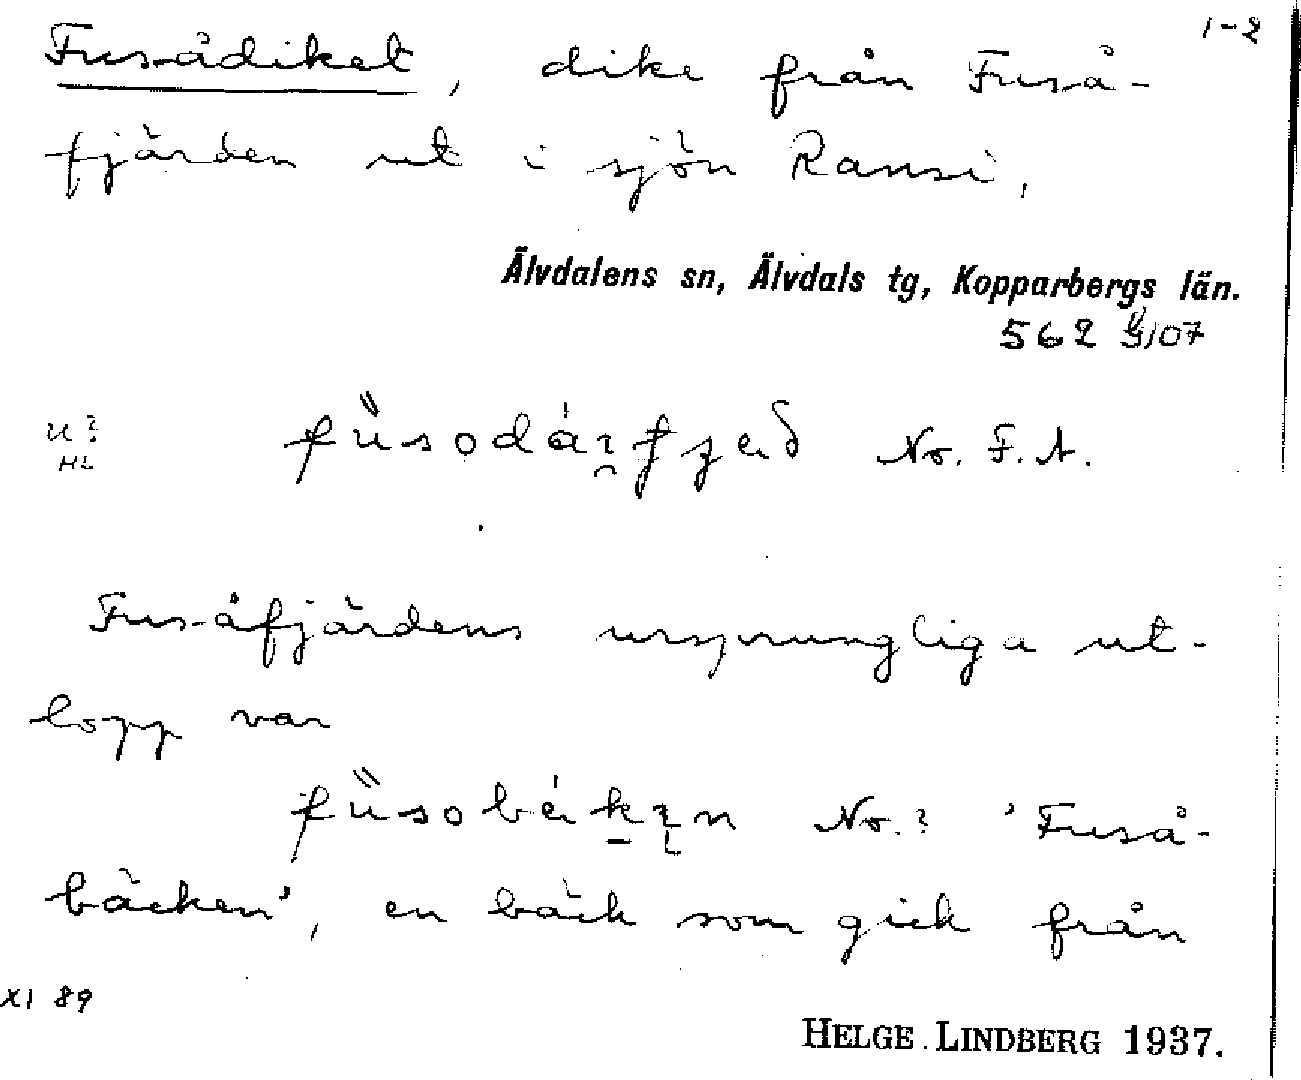 1-2
Fusådiket, dike från Fuså-
fjärden ut i sjön Ransi,
Älvdalens sn, Älvdals tg, Kopparbergs län.
562
No. F. A.
Fusåfjärdens ursprungliga ut-
lopp var
No.? 'Fuså-
bäcken', en bäck som gick från
XI 89
HELGE LINDBERG 1937.